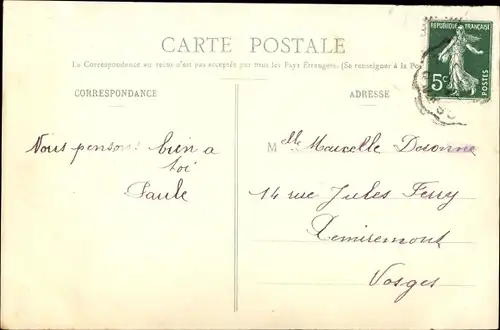 CARTE POSTALE
La Correspondance au recto n'est pas acceptée par tous les Pays Étrangers. (Se renseigner à la Pos
CORRESPONDANCE
ADRESSE
REPUBLIQUE FRANÇAISE
5c
POSTES
Nous pensons bien a
toi
Paule
Melle Marcelle
14 rue Jules Ferry
Remiremont
Vosges